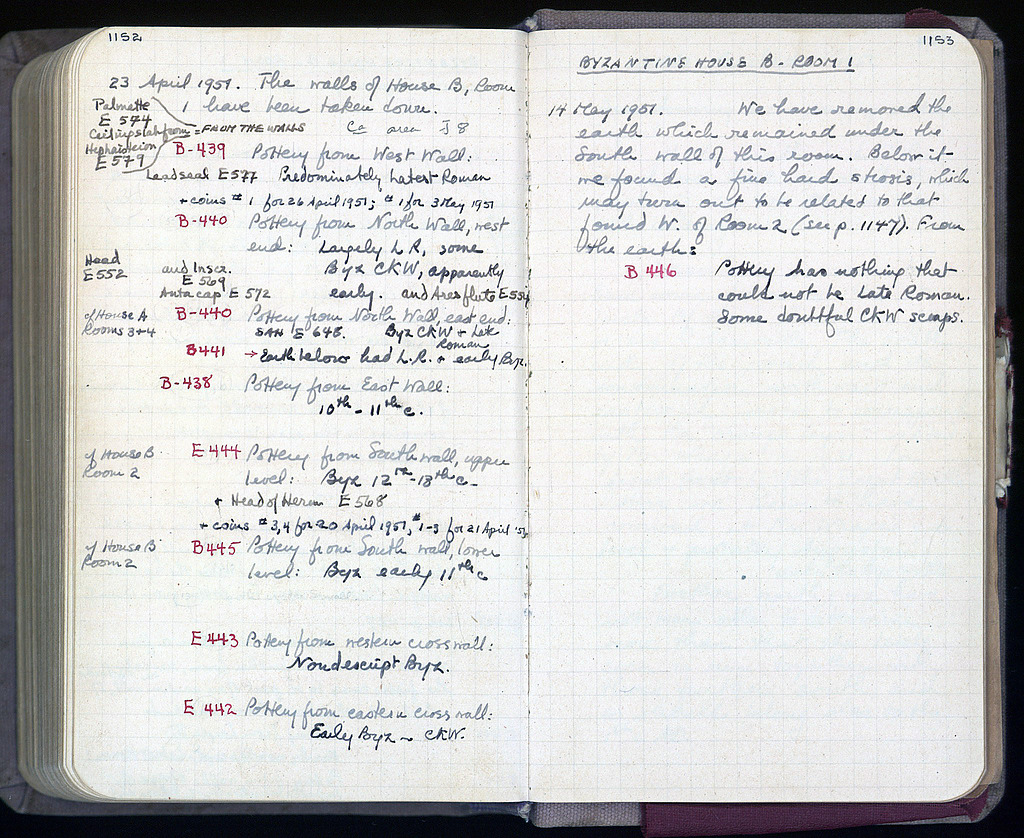 1152
23 April 1951. The walls of House B, Room
1 have been taken down.
Palmette
E 574
Ceiling slab from = FROM THE WALLS
Hephaisteion
E 579
Ca area J 8
B-439 Pottery from West Wall:
Lead seal E 577 Predominately Latest Roman
+ coins # 1 for 26 April 1951; # 1 for 3 May 1951
B-440 Pottery from North Wall, west
end: Largely L.R., some
Byz CKW, apparently
early. and Ares flute E 554
Head
E 552
and Inscr.
E 569
Anta cap E 572
of House A
Rooms 3+4
B-440 Pottery from North Wall, east end:
SAH E 648. Byz CKW + Late
Roman
B441 → Earth below had L.R. + early Byz.
B-438 Pottery from East Wall:
10th - 11th c.
of House B
Room 2
E 444 Pottery from South wall, upper
level: Byz 12th-13th c.
+ Head of Herm E 568
+ coins # 3,4 for 20 April 1951, # 1-3 for 21 April '51
of House B
Room 2
B445 Pottery from South wall, lower
level: Byz early 11th c
E 443 Pottery from western cross wall:
Nondescript Byz.
E 442 Pottery from eastern cross wall:
Early Byz - CKW.
1153
BYZANTINE HOUSE B - ROOM 1
14 May 1951. We have removed the
earth which remained under the
South wall of this room. Below it
we found a fine hard strosis, which
may turn out to be related to that
found W. of Room 2 (see p. 1147). From
the earth:
B 446 Pottery has nothing that
could not be Late Roman.
Some doubtful CKW scraps.